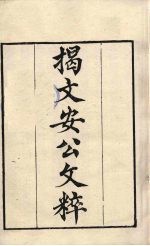 揭文安公文粹